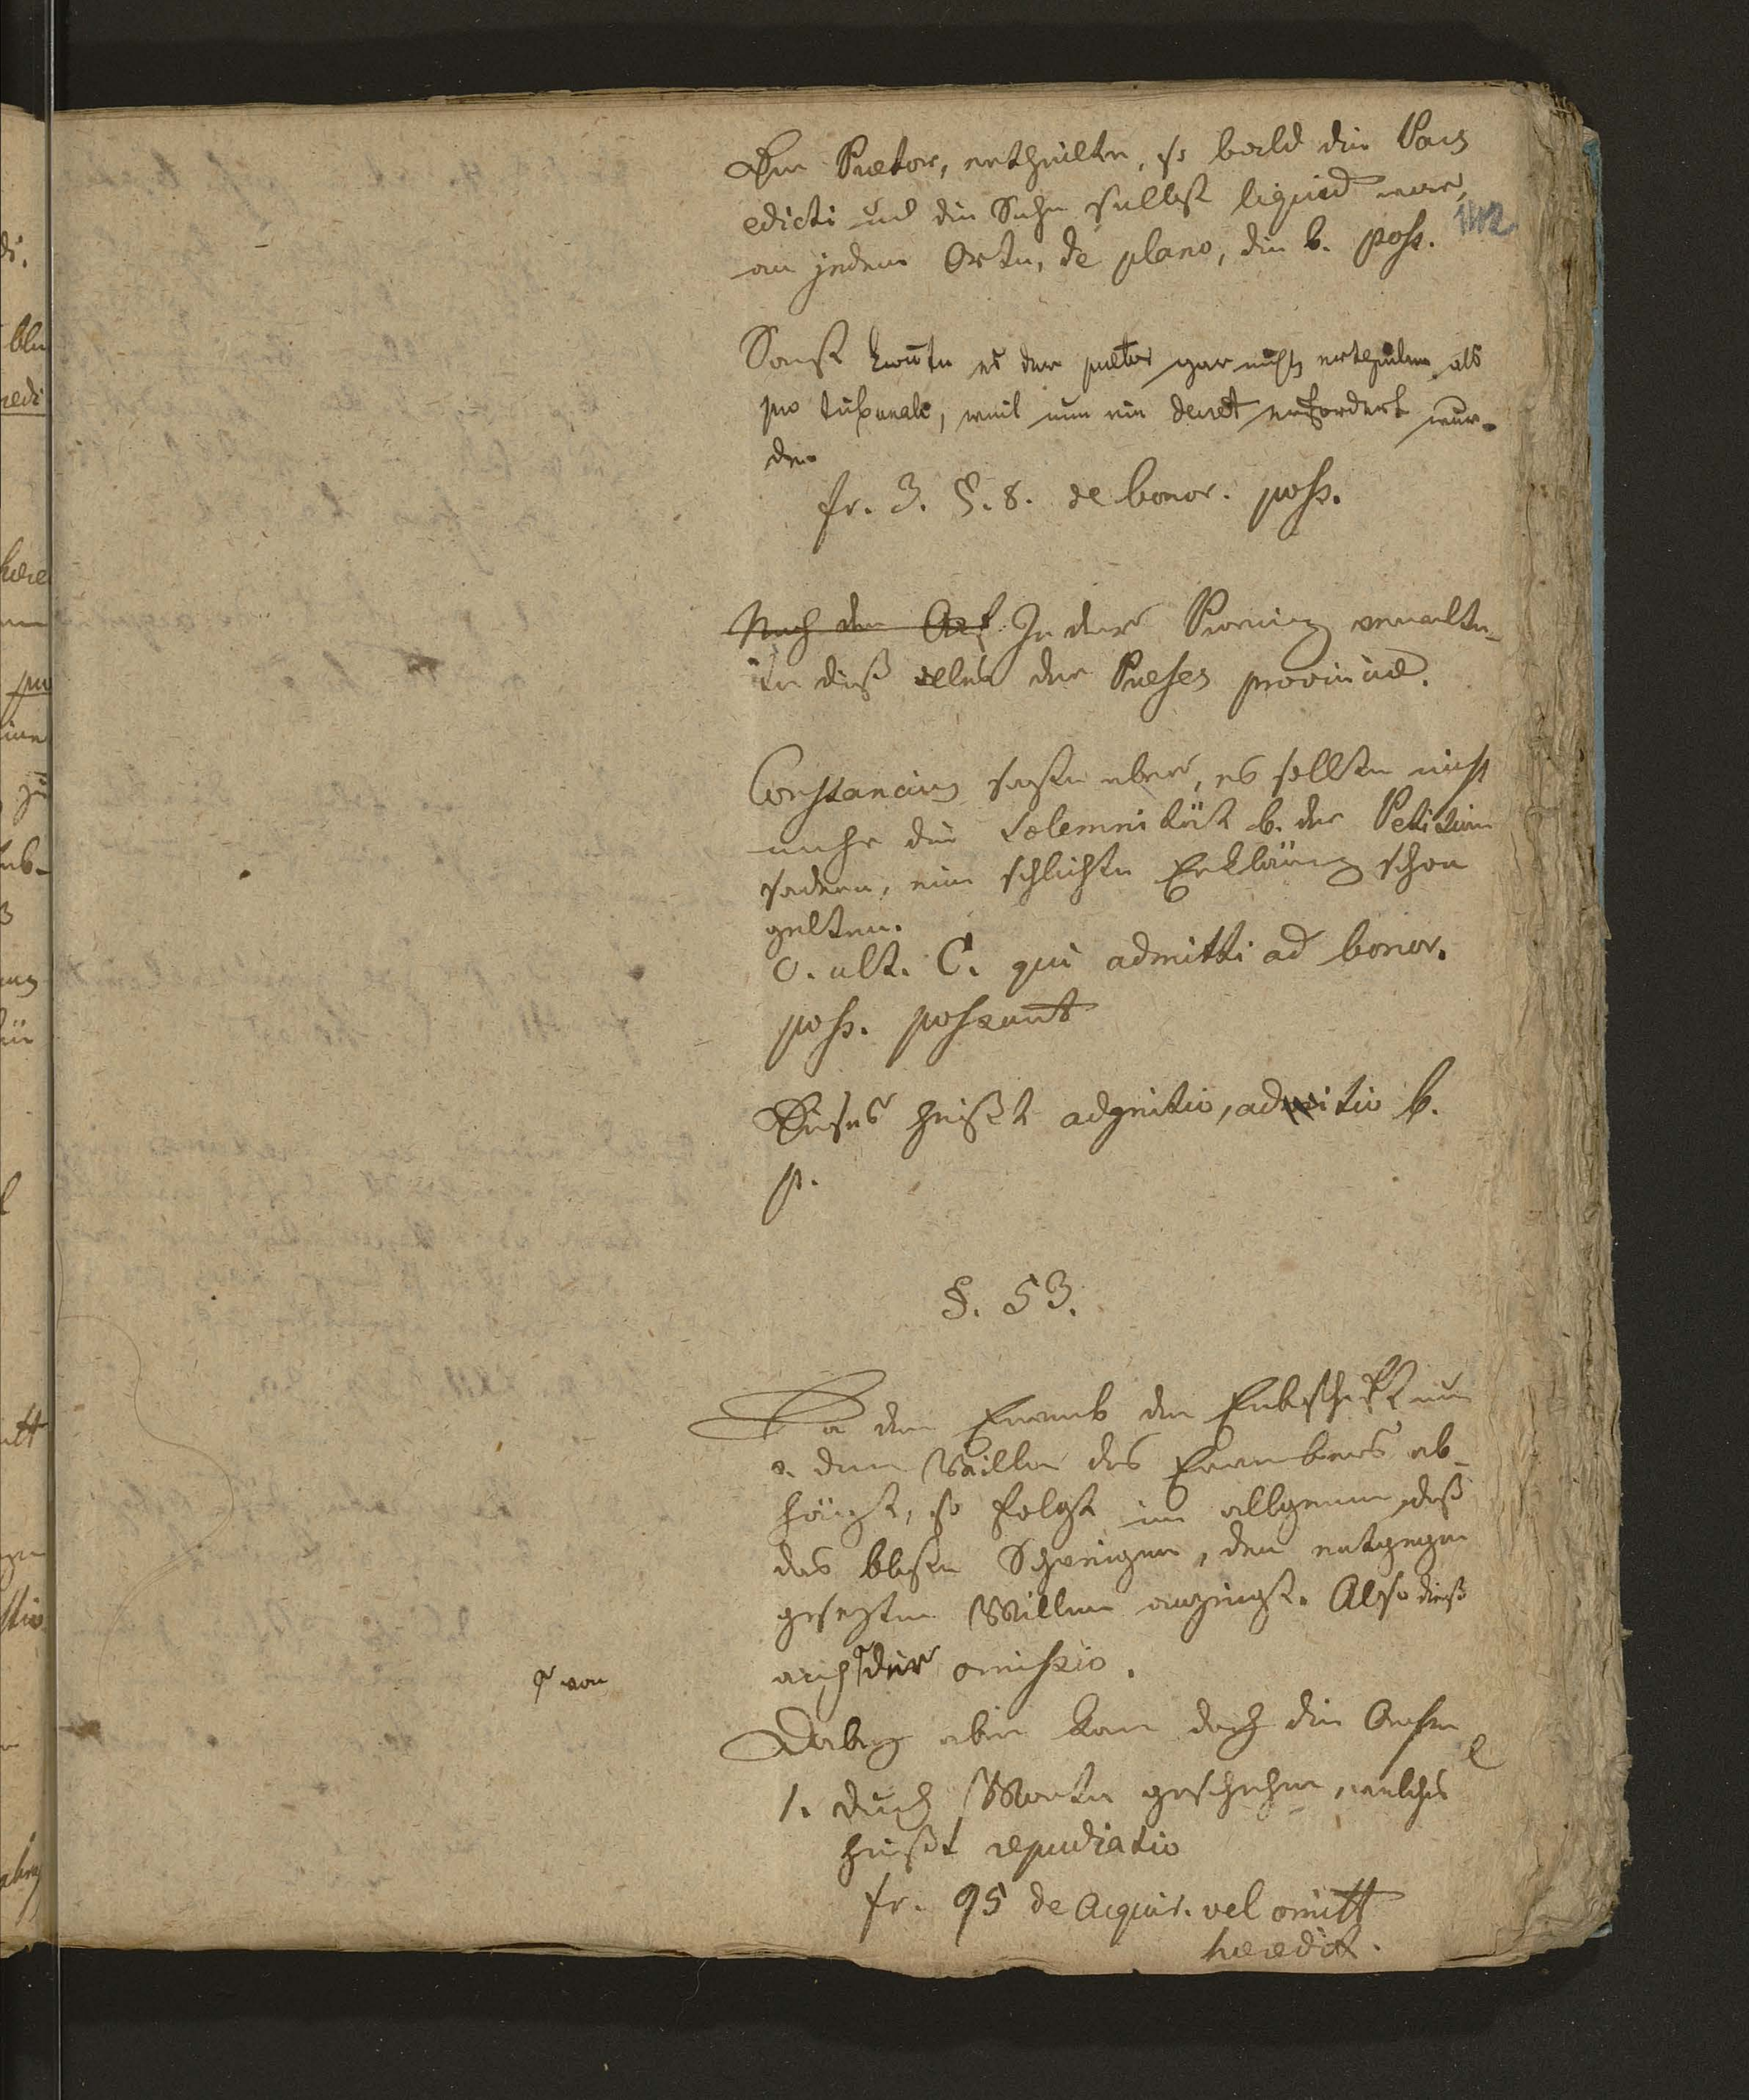 Der Praetor, ertheilte, so bald die Pars
edicti und die Sache selbst liquid war,
an jedem Orte, de plano, die b. poss.
142
Sonst konte es der praetor gar nicht ertheilen als
pro tribunali, weil nun ein decret erfordert wur-
de.
fr. 3. §. 8. de bonor. poss.
Nach den In der Provinz verwalte-
te dieß alles der Praeses provinciae.
Constancius sagte aber, es sollte nicht
mehr die Solemnität b. der Petition
sodern, eine schlichte Erklärung schon
gelten.
C. ult. C. qui admitti ad bonor.
poss. possunt
Dieses heißt adgnitio, aditio b.
p.
§. 53.
Da der Erwerb der Erbschaft nur
v. dem Willen des Erwerbers ab-
hängt, so folgt im allgemein, daß
das bloße Schweigen, den entgegen
gesezten Willen anzeigt. Also dieß
auch der omissio.
von
Dabey aber kan doch die
1. durch Worte geschehen, welches
heißt repudiatio
fr. 95 de Acquir. vel omitt
heredit.